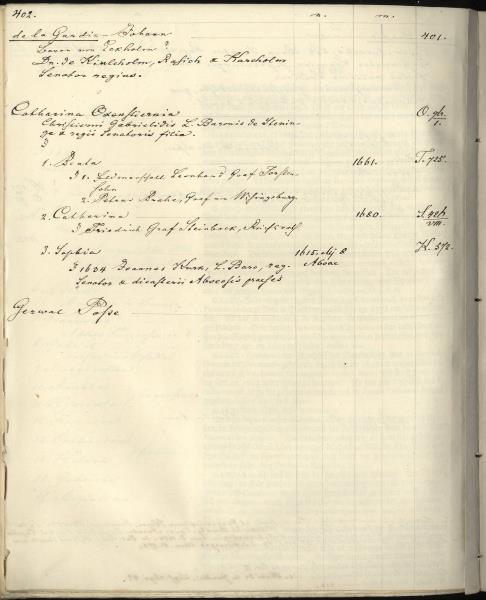 402. n. m.
de la Gardie Johann 401.
Baron von Eckholm
Dn. de Kiulcholm, Runsich & Karcholm
Senator regius.
Catharina Oxenstiernia O. 1.
Christierni Gabrielidis L. Baronis de Stenin-
ge & regii Senatoris filia.
1. Beata 1661. T. 725.
1. Feldmarschall Leonhard Graf Torsten-
sohn
2. Petrus Brahe, Graf von Wisingsburg
2. Catharina 1680. S. VIII.
Friedrich Graf Steinbock, Reichsrath
3. Sophia 1615. & K. 572.
Aboae
1634 Joannes Kurk, L. Baro, reg.
Senator & dicasterii Aboensis praeses
Gerwal Posse